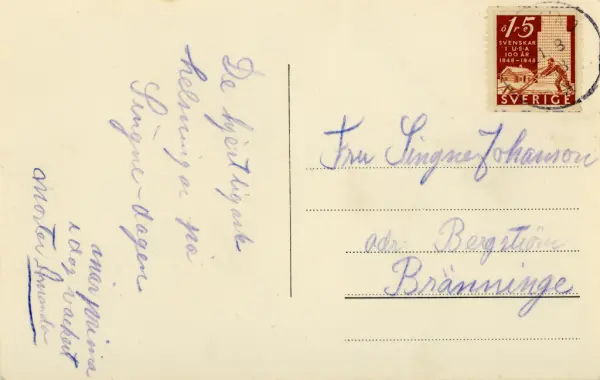 De hjertligaste
helsningar på
Singne-dagen
i dag vackert
15
öre
SVENSKAR
I USA
100 ÅR
1848-1948
SVERIGE
Fru Singne Johanson
adr. Bergström
Bränninge